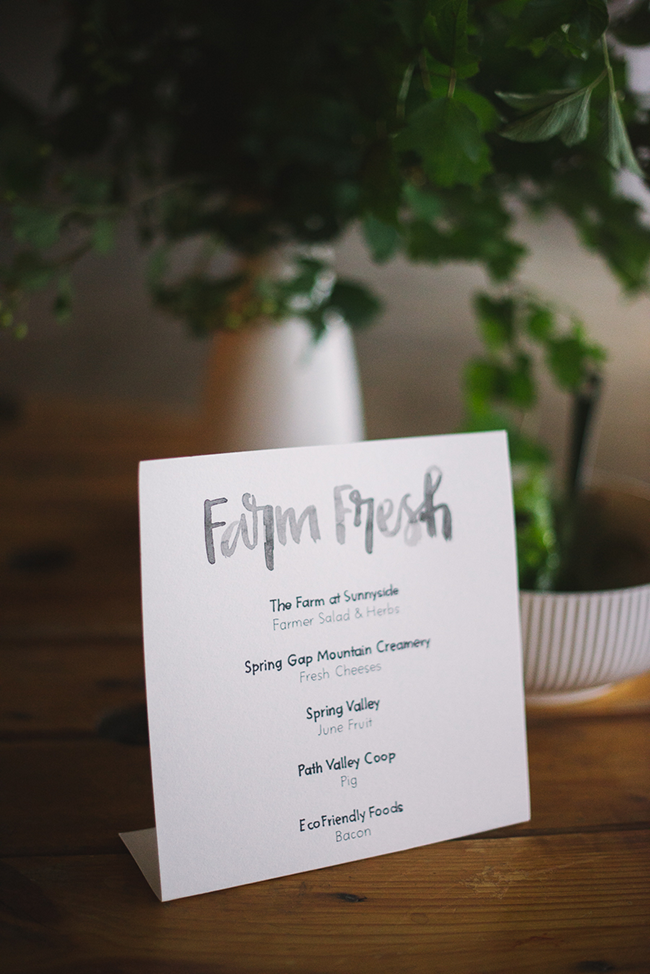 Farm Fresh
The Farm at Sunnyside
Farmer Salad & Herbs
Spring Gap Mountain Creamery
Fresh Cheeses
Spring Valley
June Fruit
Path Valley Coop
Pig
EcoFriendly Foods
Bacon